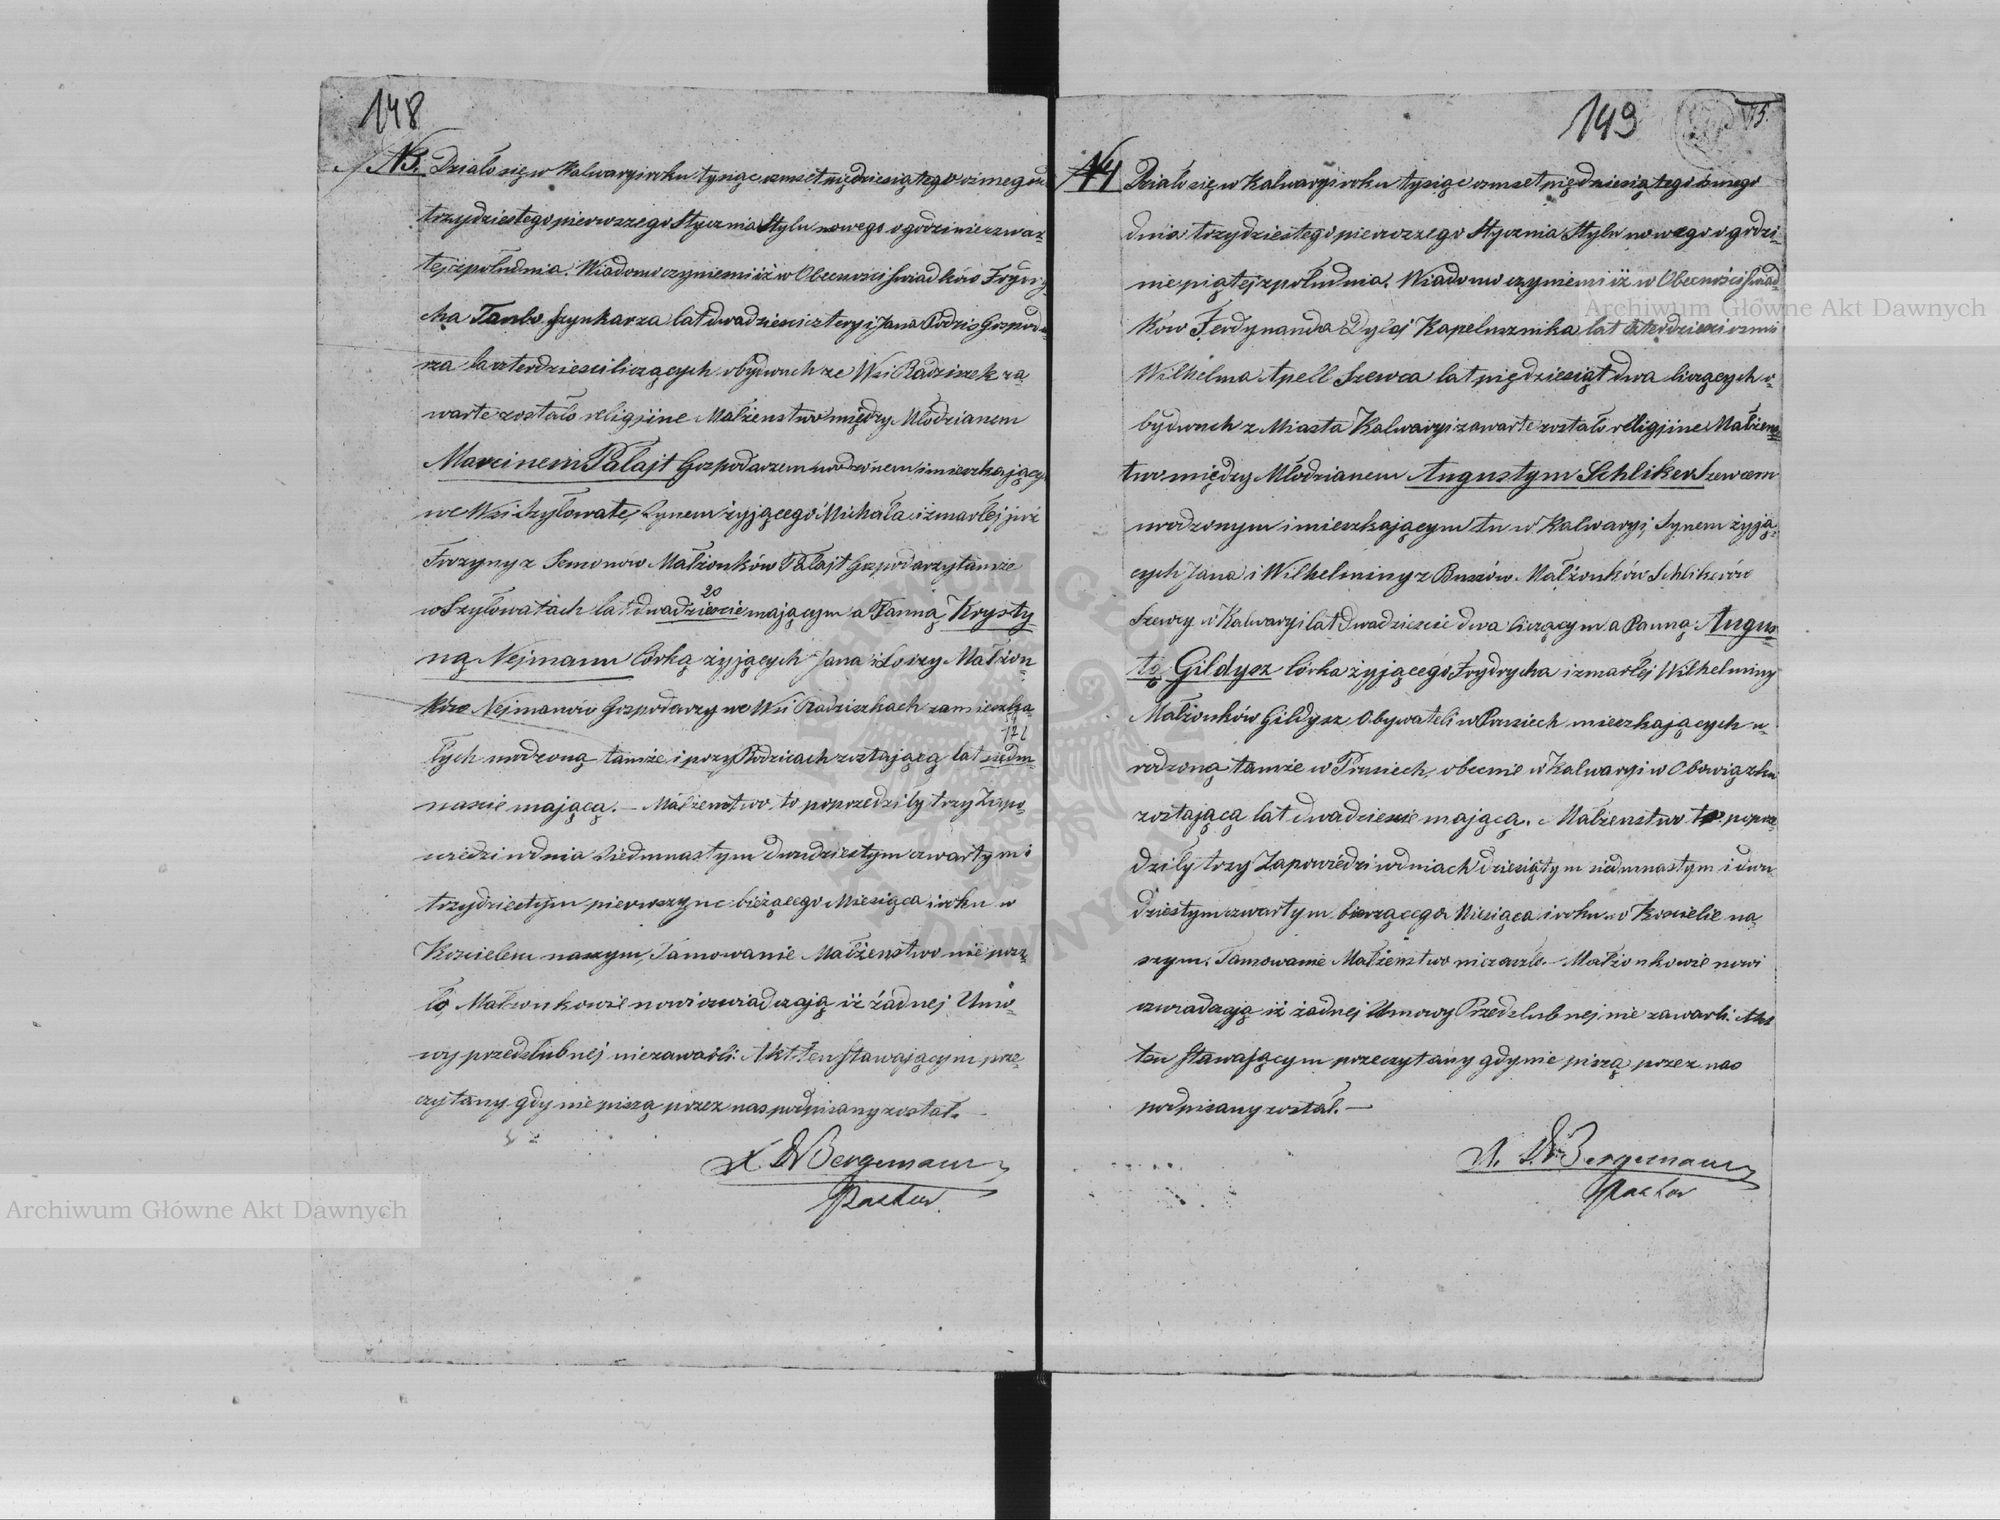 148
N3. Działo się w Kalwaryi roku tysiąc osmset piędziesiątego osmego dnia
trzydziestego pierwszego Stycznia Stylu nowego o godzinie czwar-
tej z południa. Wiadomo czyniemi iż w Obecności Swiadków Fryry-
cha Szynkarza lat dwadziescicztery i Jana Gospoda-
rza lat czterdziesci liczących obydwuch ze Wsi Radziszek za-
warte zostało religijne Małżenstwo między Młodzianem
Marcinem Pałajt Gospodarzem urodzonem i mieszkający
we Wsi Szyłowate, Synem żyjącego Michała i zmarłej już
z Semonów Małżonków Pałajt Gospodarzy tamże
20
w Szyłowatach lat dwadziescie mającym a Panną Krysty-
ną Nejmann Córką żyjących Jana i Małżon-
ków Nejmanów Gospodarzy we Wsi Radziszkach zamieszka-
17 l
łych urodzoną tamże i przy Rodzicach zostającą lat siedm-
nascie mającą. — Małżenstwo to poprzedziły trzy Zapo-
wiedzi w dnia Siedmnastym dwudziestym czwartym i
trzydziestym pierwszym bieżącego Miesiąca i roku w
Kosciele naszym, Tamowanie Małżenstwo nie zasz-
ło, Małżonkowie nowi oswiadczają iż żadnej Umo-
wy przedslubnej niezawarli. Akt ten Stawającym prze-
czytany gdy nie piszą przez nas podpisany został. —
Bergemann
Pastor
149
75.
N4 Działo się w Kalwaryi roku tysiąc osmset pięzdziesiątego osmego
dnia trzydziestego pierwszego Stycznia Stylu nowego o godzi-
nie piątej z południa. Wiadomo czyniemi iż w Obecności Swiad-
ków Ferdynanda Kapelusznika lat czterdziesci osmi
Wilhelma Apell Szewca lat pięzdziesiąt dwa liczących o-
bydwuch z Miasta Kalwaryi zawarte zostało religijne Małżens-
two między Młodzianem Augustym Schliker Szewcem
urodzonym i mieszkającym tu w Kalwaryi, Synem żyją-
cych Jana i Wilhelminy z Małżonków Schlikerów
Szewcy w Kalwaryi lat dwadziescie dwa liczącym a Panną Augus-
tą Gildysz Córka żyjącego Frydrycha i zmarłej Wilhelminy
Małżonków Gildysz Obywateli w Prusiech mieszkających u-
rodzoną tamże w Prusiech, obecnie w Kalwaryi w Obowiązku
zostającą lat dwadziescie mającą. Małżenstwo to poprze-
dziły trzy Zapowiedzi w dniach dziesiątym siedmnastym i dwu-
dziestym czwartym bierzącego Miesiąca i roku w Kosciele na-
szym. Tamowanie Małżenstwo niezaszło. — Małżonkowie nowi
oswiadczają iż żadnej Umowy Przedslubnej nie zawarli. Akt
ten Stawającym przeczytany gdy nie piszą przez nas
podpisany został. —
Bergemann
Pastor
Archiwum Główne Akt Dawnych
Archiwum Główne Akt Dawnych
ARCHIWUM GŁÓWNE
AKT DAWNYCH